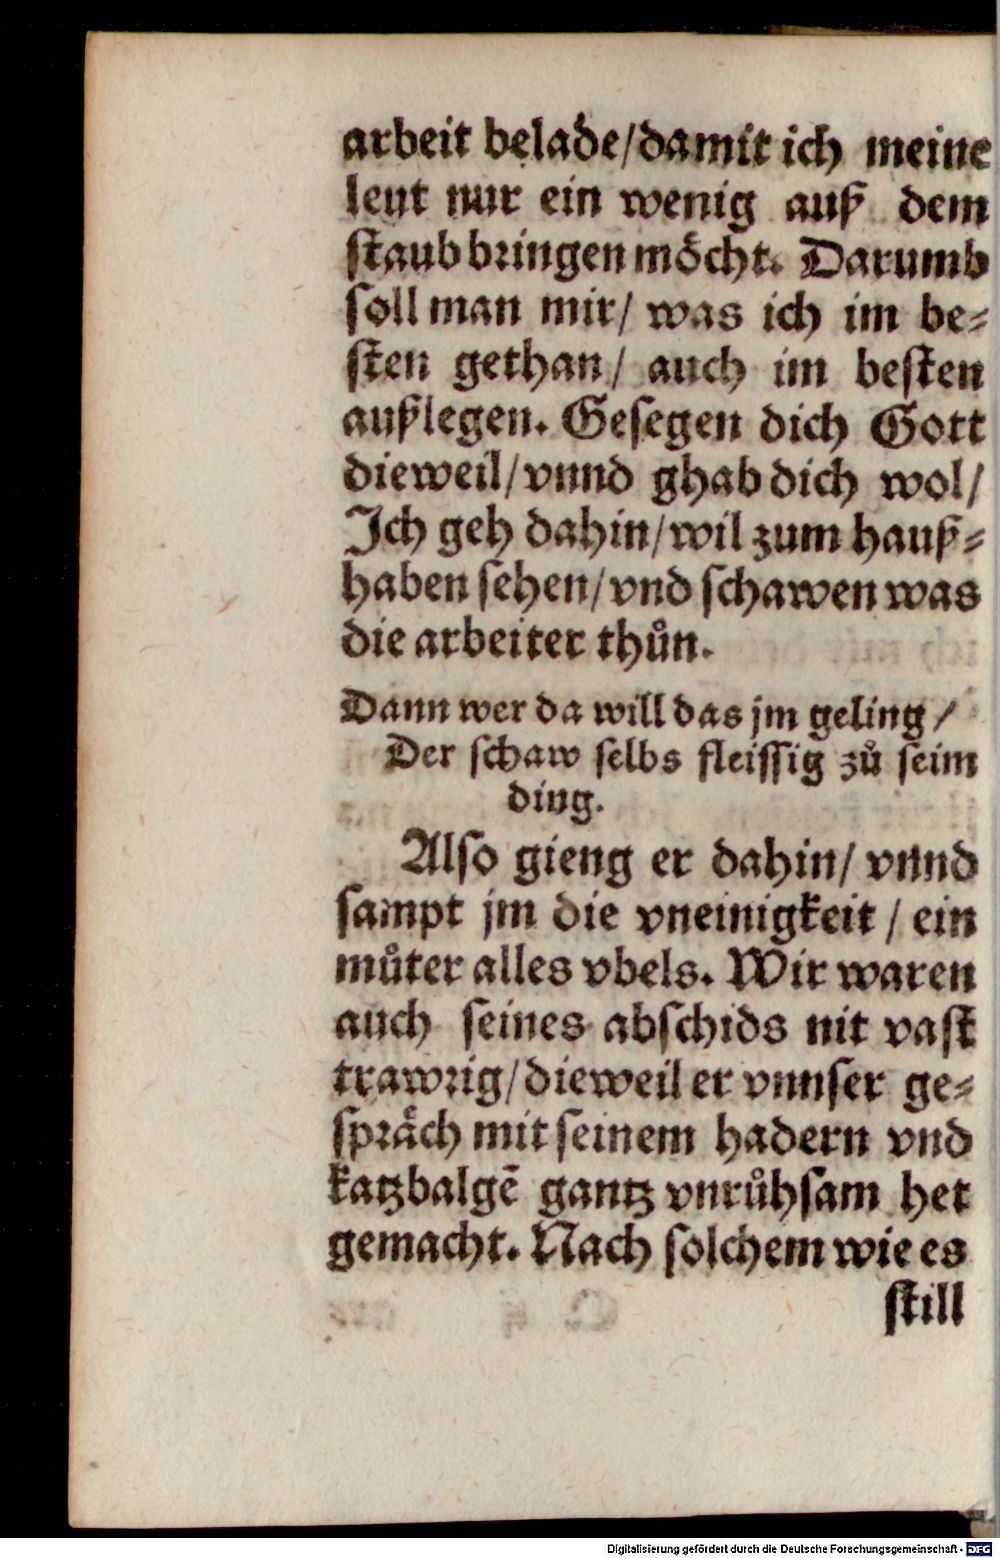 arbeit belade/damit ich meine
leut nur ein wenig auß dem
staub bringen mo&#x364;cht. Darumb
soll man mir/ was ich im be⸗
sten gethan/ auch im besten
außlegen. Gesegen dich Gott
dieweil/vnnd ghab dich wol/
Ich geh dahin/wil zum hauß⸗
haben sehen/vnd schawen was
die arbeiter thůn.
Dann wer da will das jm geling/
Der schaw selbs fleissig zů seim
ding.
Also gieng er dahin/ vnnd
sampt jm die vneinigkeit / ein
můter alles vbels. Wir waren
auch seines abschids nit vast
trawrig/dieweil er vnnser ge⸗
spräch mit seinem hadern vnd
katzbalgẽ gantz vnrůhsam het
gemacht. Nach solchem wie es
still
Digitalisierung gefördert durch die Deutsche Forschungsgemeinschaft - DFG